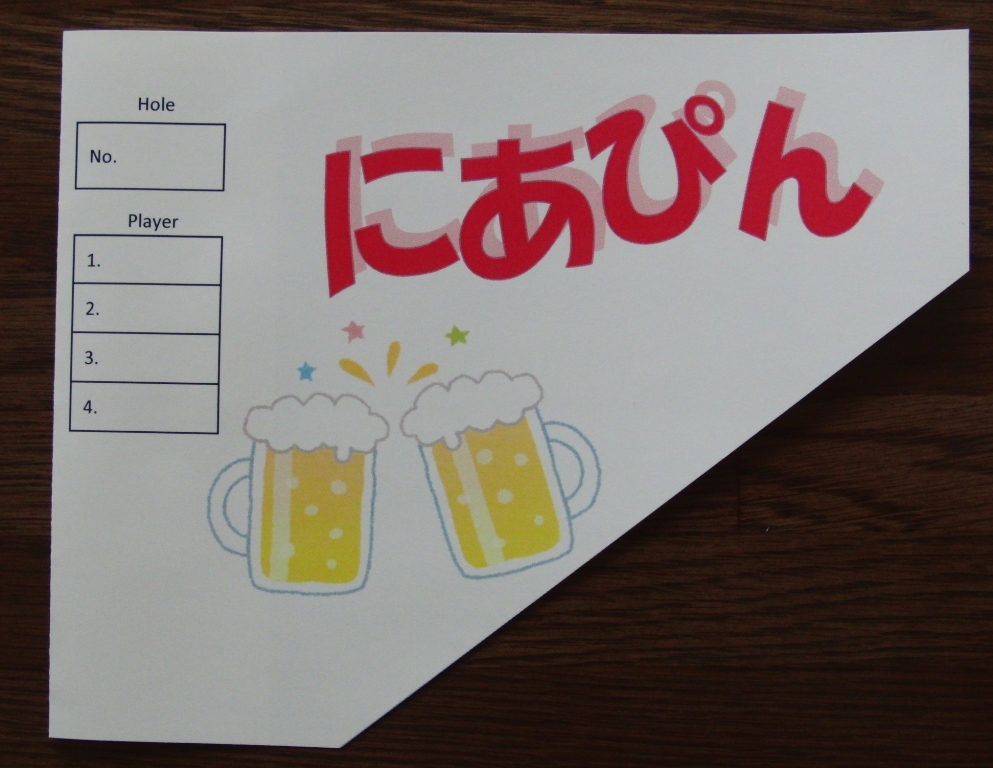 Hole
No.
Player
1.
2.
3.
4.
にあぴん